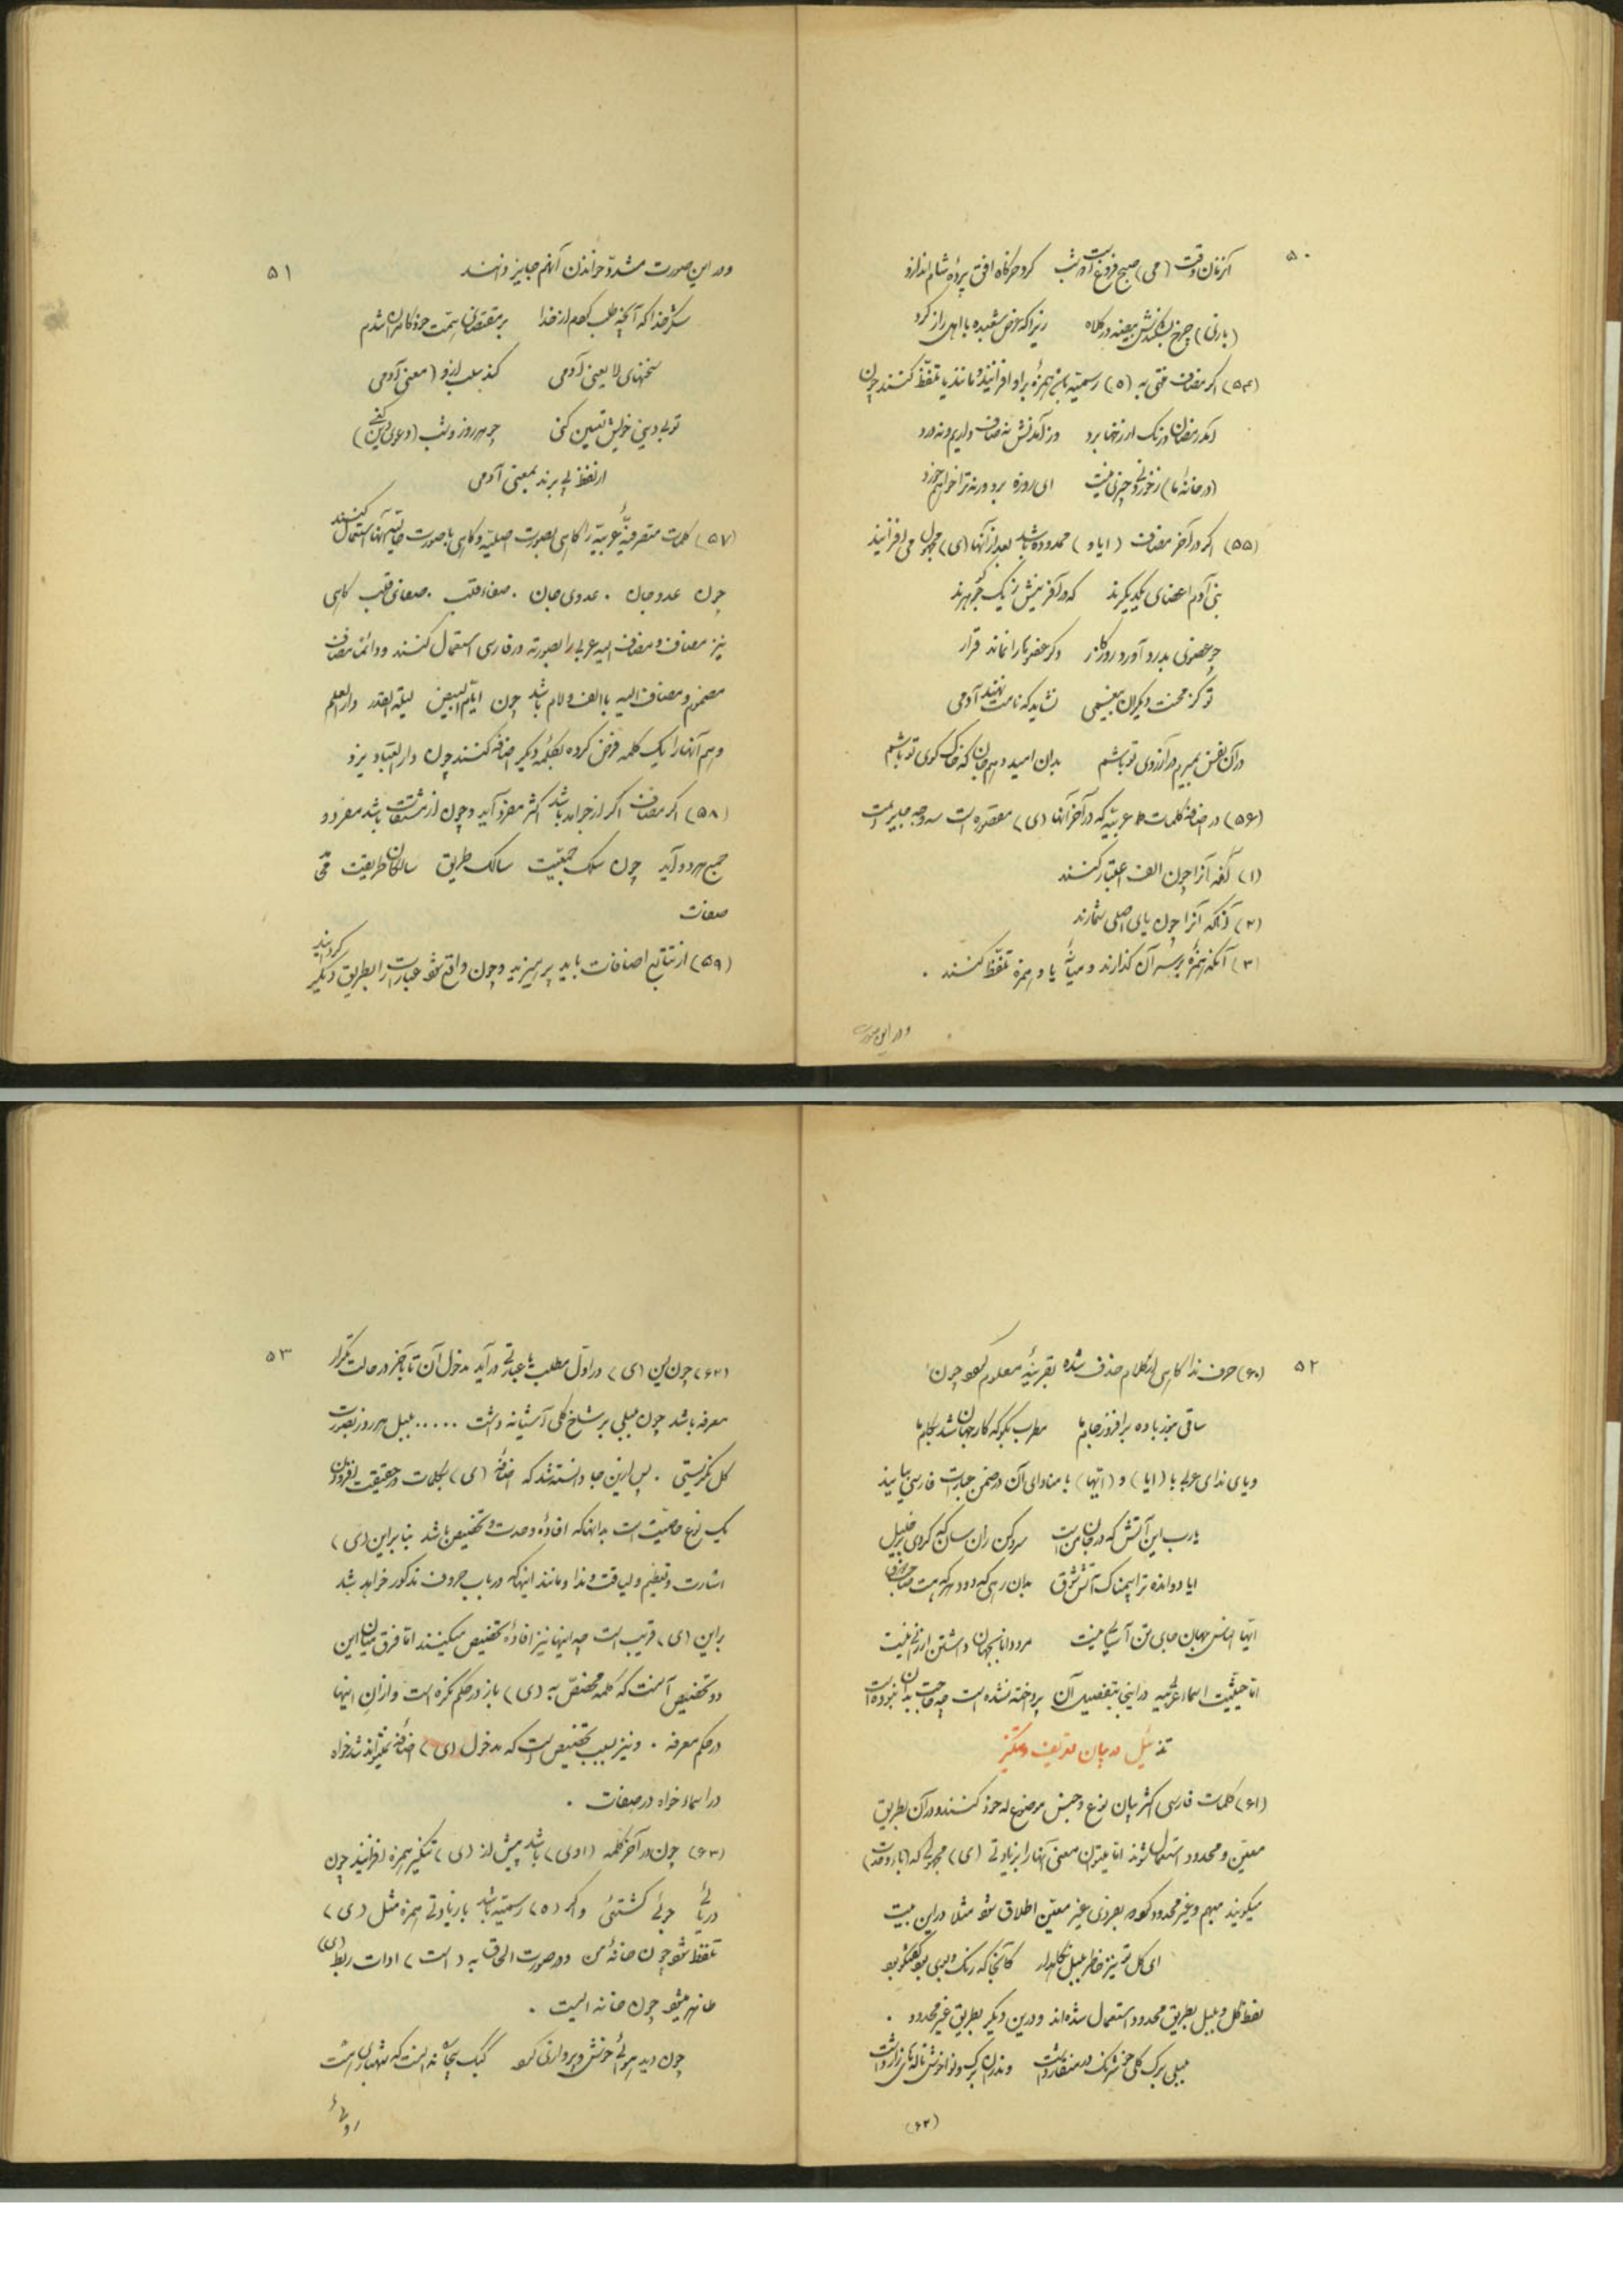 ۵۰
(بازی) چرخ بشکندش بیضه در کلاه زیرا که عرض شعبده با اهل راز کرد
(۵۴) اگر مضاف منتهی به (ه) رسمیّه باشد همزهٔ برا و افزایند و مانند یا تلفّظ کنند چون
(در خانهٔ ما) ز خوردنی چیزی نیست ای روزه برو ورنه ترا خواهم خورد
(۵۵) اگر در آخر مضاف (ا یا و) ممدوده باشد بعد از آنها (ی) مجهول می افزایند
بنی آدم اعضای یکدیگرند که در آفرینش ز یک گوهرند
چو عضوی بدرد آورد روزگار دگر عضوها را نماند قرار
تو کز محنت دیگران بیغمی نشاید که نامت نهند آدمی
در آن نفس بمیرم در آرزوی تو باشم بدان امید دهم جان که خاک کوی تو باشم
(۵۶) در اضافهٔ کلمات عربیّه که در آخر آنها (ی) مقصوره است سه وجه جایز است
(۱) آنکه آنرا چون الف اعتبار کنند
(۲) آنکه آنرا چون یای اصلی شمارند
(۳) آنکه همزهٔ بر سر آن گذارند و میانهٔ یا و همزه تلفّظ کنند .
و در این صورت
۵۱
و در این صورت مشدّد خواندن آنهم جایز دانند
شکر خدا که آنچه طلب کردم از خدا بر مقتضای همّت خود کامران شدم
سخنهای لا یعنی آدمی کند سلب ازو (معنی آدمی)
تو بی دینی خویش تعیین کنی چو هر روز و شب (دعوی دین کنی)
از لفظ پی برند بمعنی آدمی
(۵۷) کلمات متصرفهٔ عربیّه را گاهی بصورت اصلیّه و گاهی با صورت حالیّهٔ آنها استعمال کنند
چون عدو جان . عدوی جان . صفاء قلب . صفای قلب گاهی
نیز مضاف و مضاف الیه عربی را بصورته در فارسی استعمال کنند و دائما مضاف
مضموم و مضاف الیه با الف و لام باشد چون ایّام البیض لیلة القدر دار العلم
و هم آنها را یک کلمه فرض کرده بکلمهٔ دیگر اضافه کنند چون دار العباد یزد
(۵۸) اگر مضاف اگر از جوامد باشد اکثر مفرد آید و چون از مشتقات باشد مفرد و
جمع هر دو آید چون سلک جمعیّت سالک طریق سالکان طریقت
صفات
(۵۹) از تتابع اضافات باید پرهیزید و چون واقع شود عبارت را بطریق دیگر گردانید
۵۲
(۶۰) حرف ندا گاهی از کلام حذف شده بقرینهٔ معلوم بود چون
ساقی بنور باده بر افروز جام ما مطرب بگو که کار جهان شد بکام ما
و یای ندای عربی با (ایا) و (ایّها) با منادای آن در ضمن عبارات فارسی بیایند
یا رب این آتش که در جان من است سرد کن زان سان که کردی بر خلیل
امّا حیثیّت اسماء عربیّه در اینجا بتفصیل آن پرداخته نشده است چه حاجت بدان نبوده است
تذییل در بیان تعریف و تنکیر
(۶۱) کلمات فارسی اکثر بیان نوع و جنس موضوع له خود کنند و در آن بطریق
معیّن و محدود استعمال شوند امّا بتوان معنی آنها را بزیادتی (ی) مجهولی که (یاء وحدت)
میگویند مبهم و غیر محدود کرد بفردی غیر معیّن اطلاق شود مثلا در این بیت
لفظ گل و بلبل بطریق محدود استعمال شده اند و درین دیگر بطریق غیر محدود .
بلبلی برگ گلی خوش رنگ در منقار داشت وندران برگ و نوا خوش ناله های زار داشت
(۶۲)
۵۳
(۶۲) چون این (ی) در اوّل مطلب یا عبارتی در آید مدخول آن تا بآخر در حالت تکرار
معرفه باشد چون بلبلی بر شاخ گلی آشیانه داشت ..... بلبل هر روز بصورت
گل نگریستی . پس ازین جا دانسته شد که اضافهٔ (ی) بکلمات در حقیقت افزودن
یک نوع خاصیّت است بدانها که افادهٔ وحدت و تخصیص باشد بنا براین (ی)
اشارت و تعظیم و لیاقت و ندا و مانند اینها که در باب حروف مذکور خواهد شد
براین (ی) قریب است چه اینها نیز افادهٔ تخصیص میکنند امّا فرق میان این
دو تخصیص آنست که کلمه مختصّ به (ی) باز در حکم نکره است و از آن اینها
در حکم معرفه . و نیز بسبب تخصیص است که مدخول (ی) اضافه نمیتواند شد خواه
در اسماء خواه در صفات .
(۶۳) چون در آخر کلمه (ا و ی) باشد پیش از (ی) تنکیر همزه افزایند چون
دریائی جوئی کشتئی و اگر (ه) رسمیّه باشد با زیادتی همزه مثل (ی)
تلفّظ شود چون خانهٔ من و در صورت الحاق به (است) ادات ربط (ی)
ظاهر میشود چون خانه ایست .